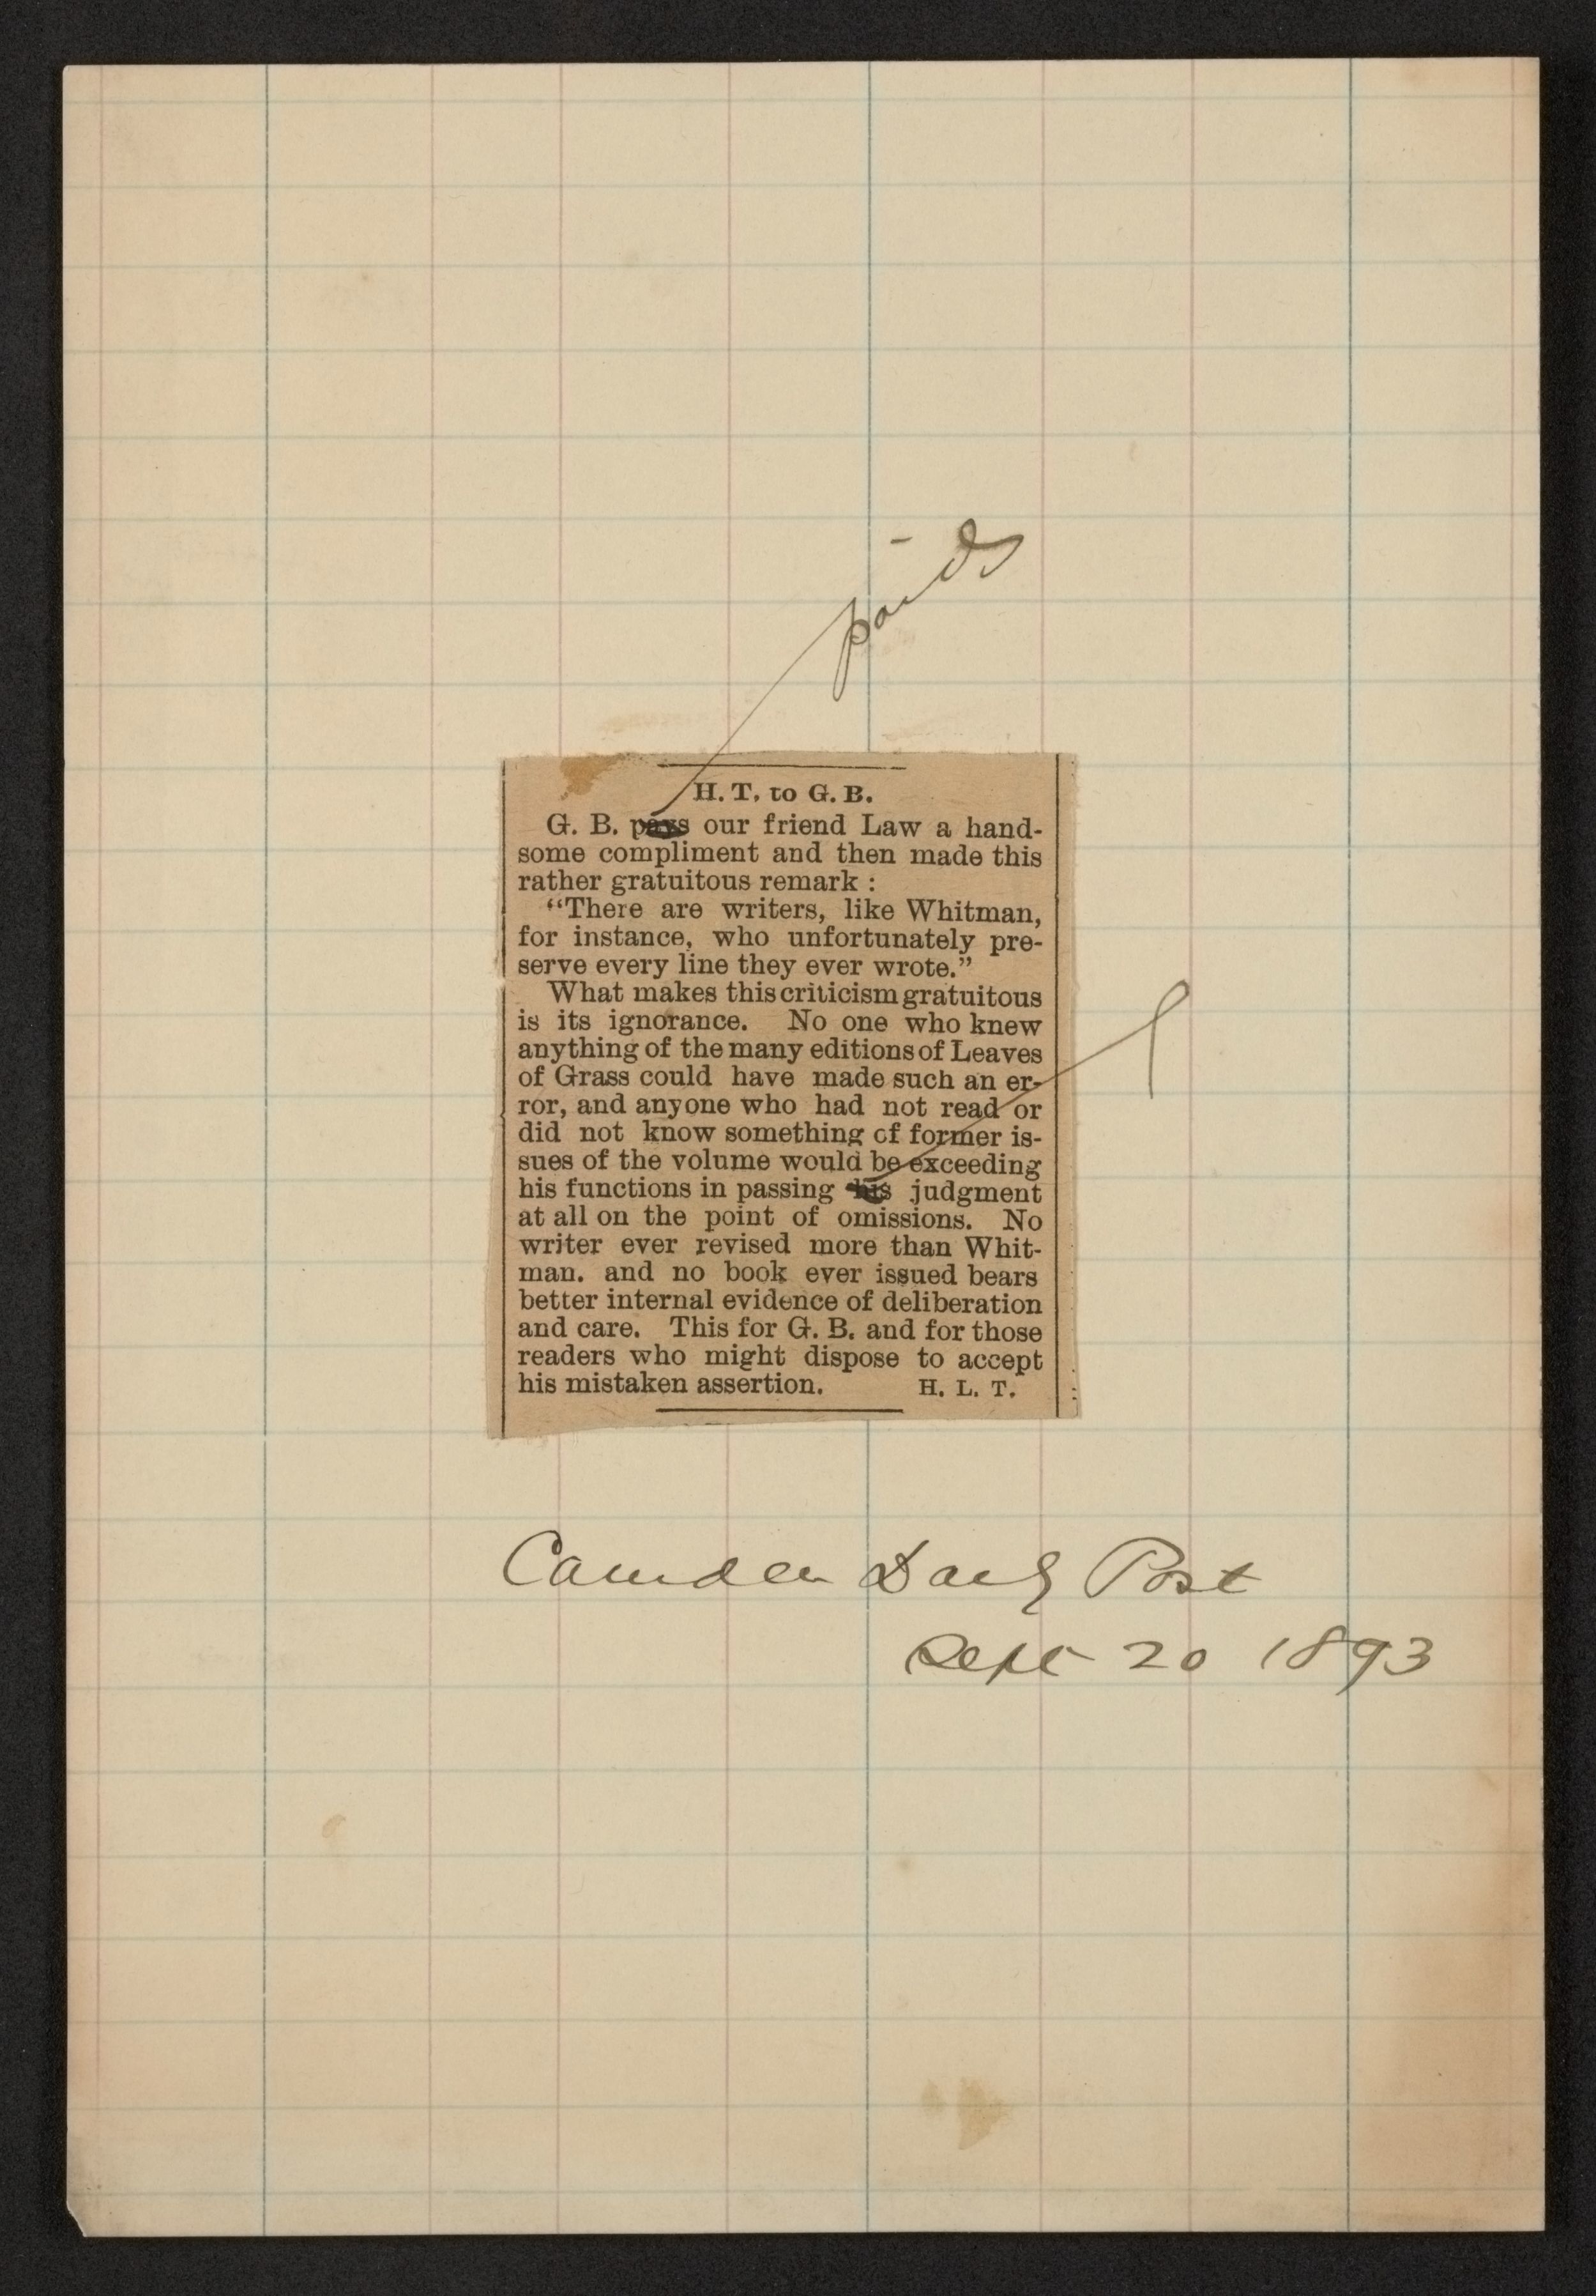 paids
H. T. to G. B.
G. B. pays our friend Law a hand-
some compliment and then made this
rather gratuitous remark :
“There are writers, like Whitman,
for instance, who unfortunately pre-
serve every line they ever wrote.”
What makes this criticism gratuitous
is its ignorance. No one who knew
anything of the many editions of Leaves
of Grass could have made such an er-
ror, and anyone who had not read or
did not know something of former is-
sues of the volume would be exceeding
his functions in passing his judgment
at all on the point of omissions. No
writer ever revised more than Whit-
man. and no book ever issued bears
better internal evidence of deliberation
and care. This for G. B. and for those
readers who might dispose to accept
his mistaken assertion. H. L. T.
Camden Daily Post
Sept 20 1893